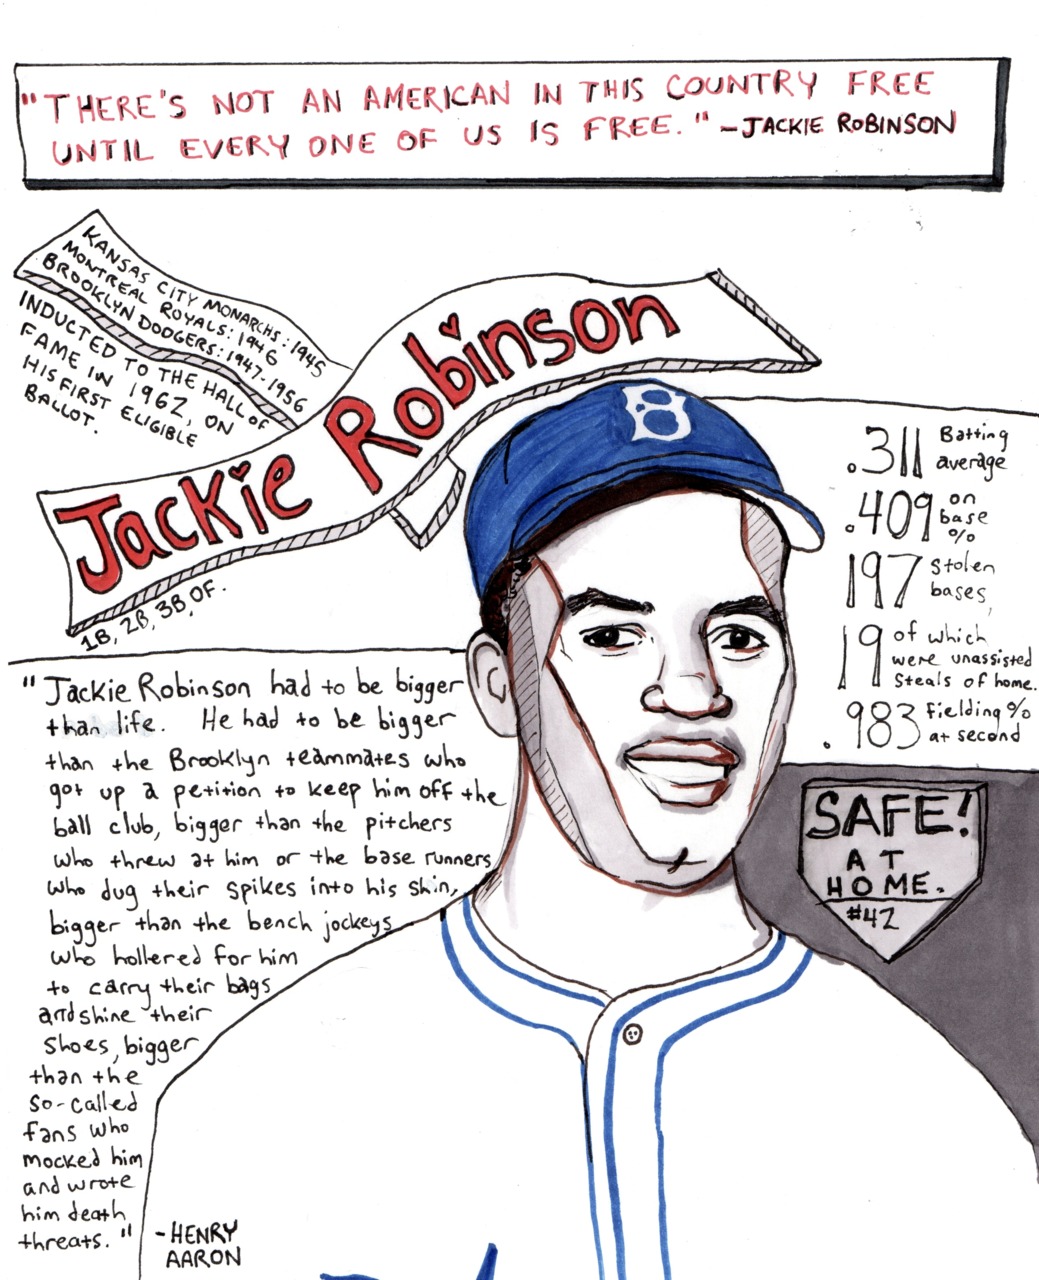 "THERE'S NOT AN AMERICAN IN THIS COUNTRY FREE
UNTIL EVERY ONE OF US IS FREE." -JACKIE ROBINSON
KANSAS CITY MONARCHS: 1945
MONTREAL ROYALS: 1946
BROOKLYN DODGERS: 1947-1956
INDUCTED TO THE HALL OF
FAME IN 1962, ON
HIS FIRST ELIGIBLE
BALLOT.
Jackie Robinson
1B, 2B, 3B, OF.
B
.311 Batting
average
.409 on
base
%
197 Stolen
bases,
19 of which
were unassisted
Steals of home.
.983 Fielding %
at second
"Jackie Robinson had to be bigger
than life. He had to be bigger
than the Brooklyn teammates who
got up a petition to keep him off the
ball club, bigger than the pitchers
who threw at him or the base runners
who dug their spikes into his skin,
bigger than the bench jockeys
who hollered for him
to carry their bags
and shine their
shoes, bigger
than the
so-called
fans who
mocked him
and wrote
him death
threats."
-HENRY
AARON
SAFE!
AT
HOME.
#42